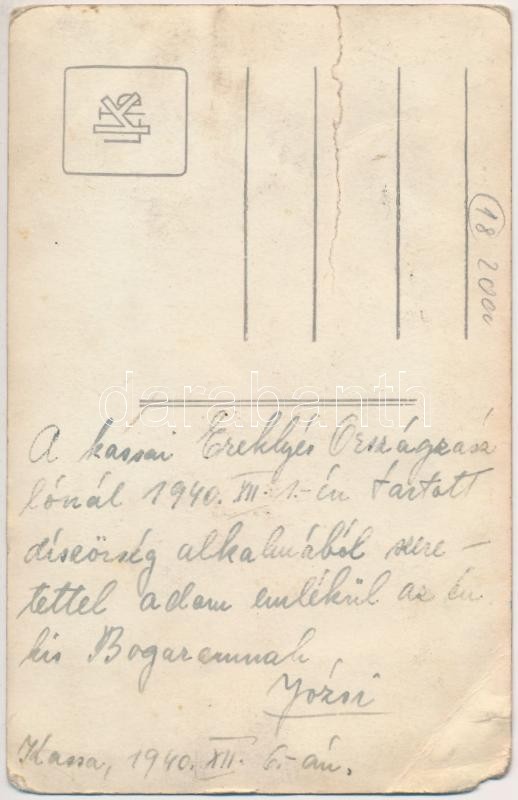 18 2000
darabanth
A kassai Ereklyés Országzász
lónál 1940. XII. 1.-én tartott
díszőrség alkalmából szere-
tettel adom emlékül az én
kis Bogaramnak
Józsi
Kassa, 1940. XII. 6.-án.